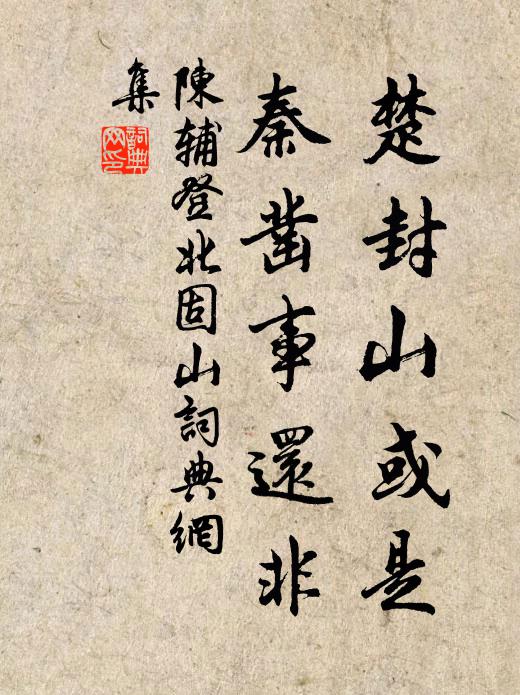 楚封山或是
秦凿事還非
陳輔登北固山詞典網
集
詞典網印